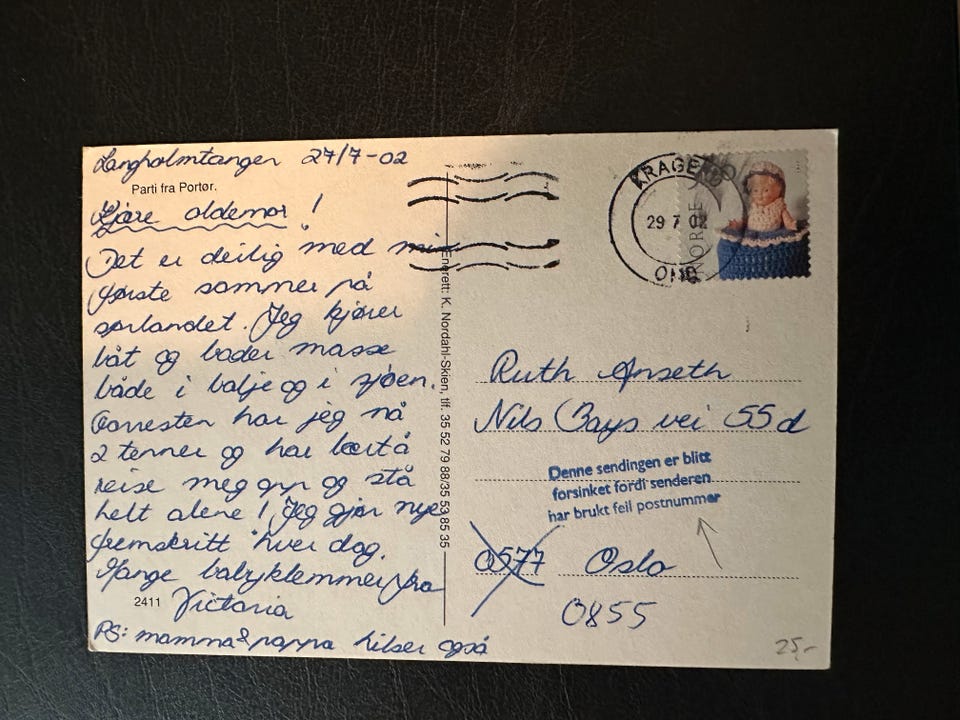 Langholmtangen 27/7-02
Parti fra Portør.
Kjære oldemor!
Det er deilig med min
første sommer på
sørlandet. Jeg kjører
båt og bader masse
både i balje og i sjøen.
Forresten har jeg nå
2 tenner og har lært å
reise meg opp og stå
helt alene! Jeg gjør nye
fremskritt hver dag.
Mange babyklemmer fra
Victoria
2411
PS: mamma & pappa hilser også
Enerett: K. Nordahl-Skien, tlf. 35 52 79 88/35 53 85 35
KRAGERØ
29 7 02
NORGE
Ruth Anseth
Nils Bays vei 55d
Denne sendingen er blitt
forsinket fordi senderen
har brukt feil postnummer
0577 Oslo
0855
25,-